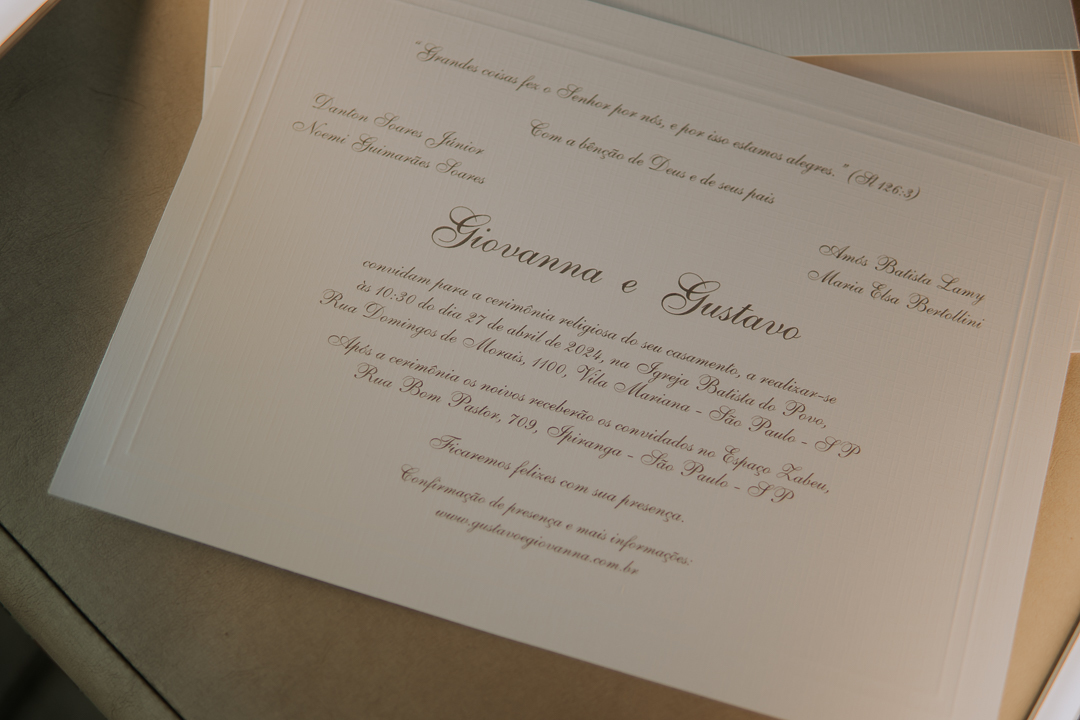 "Grandes coisas fez o Senhor por nós, e por isso estamos alegres." (Sl 126:3)
Com a bênção de Deus e de seus pais
Danton Soares Júnior
Noemi Guimarães Soares
Amós Batista Lamy
Maria Elsa Bertollini
Giovanna e Gustavo
convidam para a cerimônia religiosa do seu casamento, a realizar-se
às 10:30 do dia 27 de abril de 2024, na Igreja Batista do Povo,
Rua Domingos de Morais, 1100, Vila Mariana - São Paulo - SP
Após a cerimônia os noivos receberão os convidados no Espaço Zabeu,
Rua Bom Pastor, 709, Ipiranga - São Paulo - SP
Ficaremos felizes com sua presença.
Confirmação de presença e mais informações:
www.gustavoegiovanna.com.br